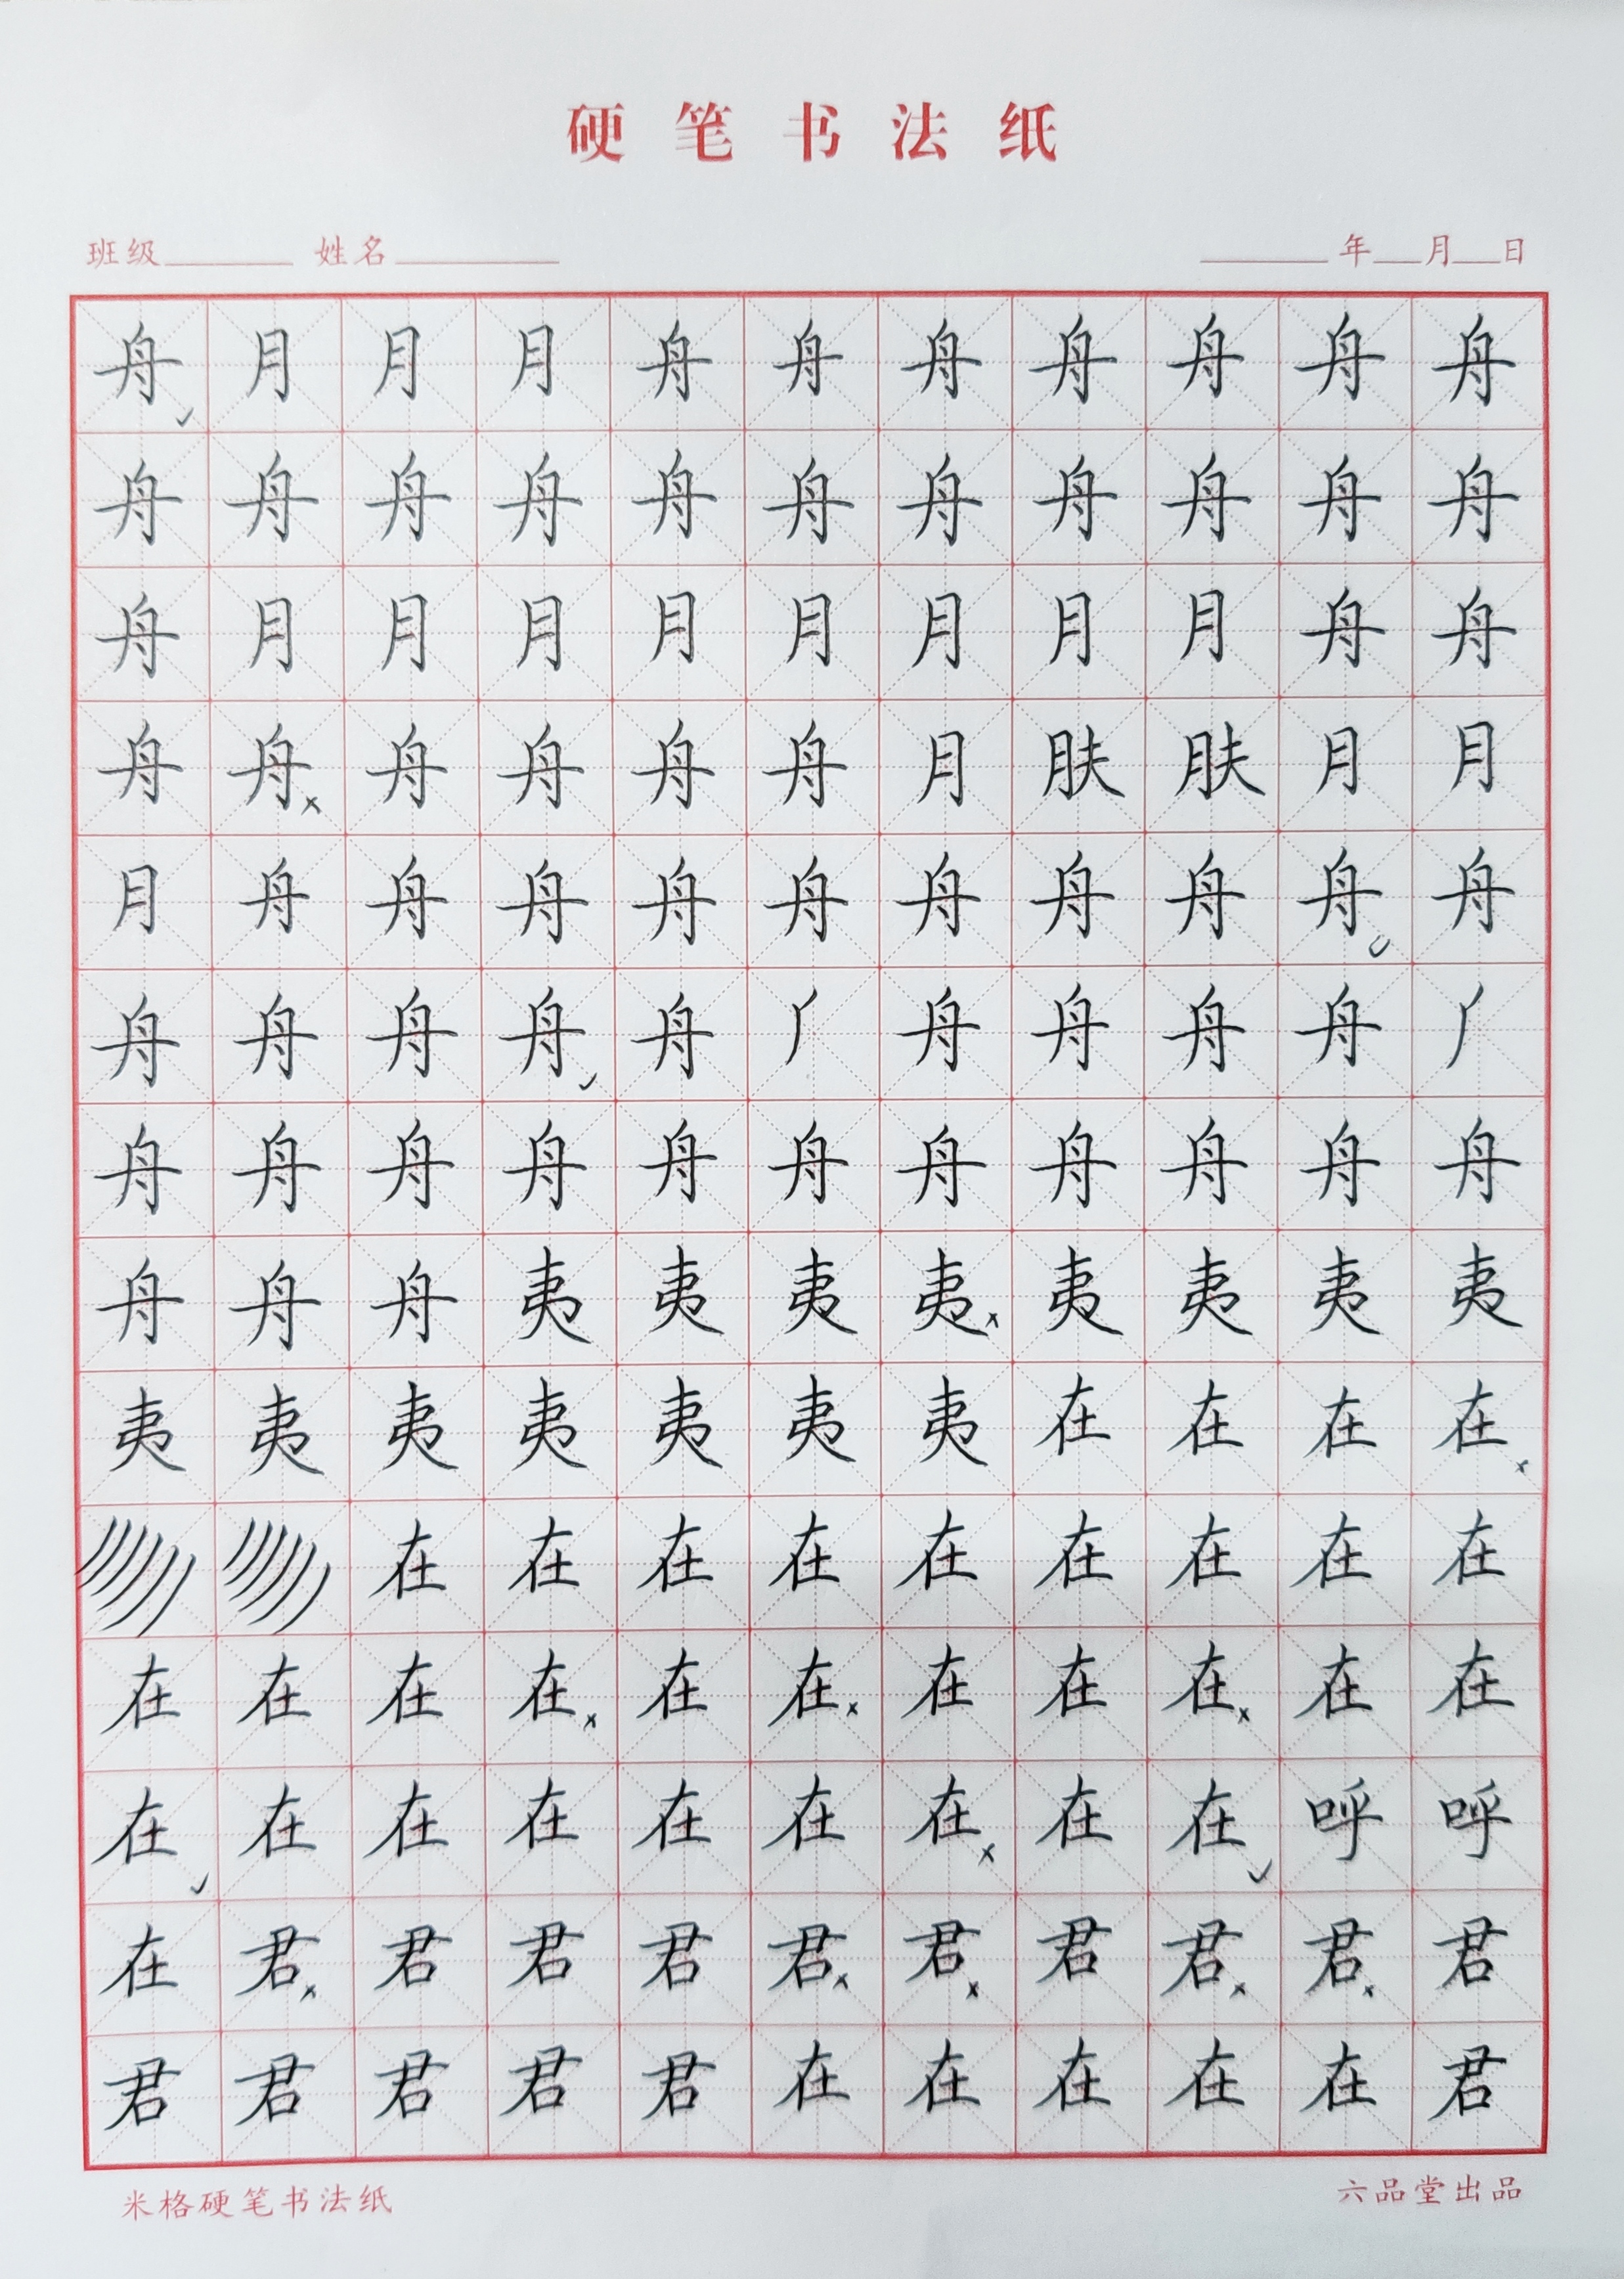 硬笔书法纸
班级 姓名 年 月 日
舟月月月舟舟舟舟舟舟舟
舟舟舟舟舟舟舟舟舟舟舟
舟月月月月月月月月舟舟
舟舟舟舟舟舟月肤肤月月
月舟舟舟舟舟舟舟舟舟舟
舟舟舟舟舟舟舟舟舟
舟舟舟舟舟舟舟舟舟舟舟
舟舟舟夷夷夷夷夷夷夷夷
夷夷夷夷夷夷夷在在在在
在在在在在在在在在
在在在在在在在在在在在
在在在在在在在在在呼呼
在君君君君君君君君君君
君君君君君在在在在在君
米格硬笔书法纸 六品堂出品